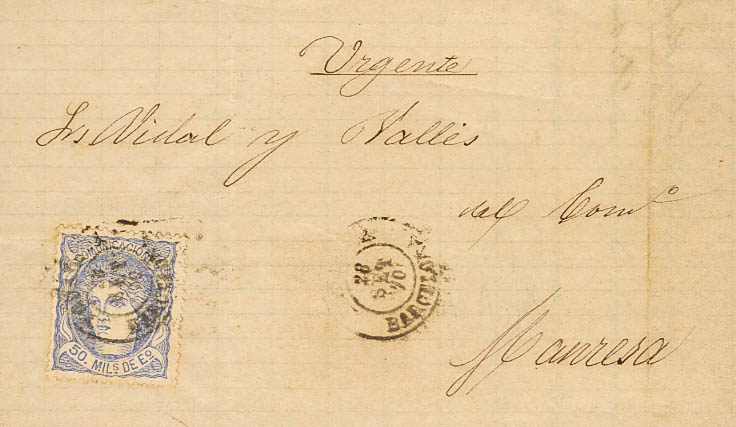 Urgente
Srs Vidal y Vallés
del Comº
Manresa
COMUNICACIONES
50. MILS DE Eº
BARCELONA
28
SET
70